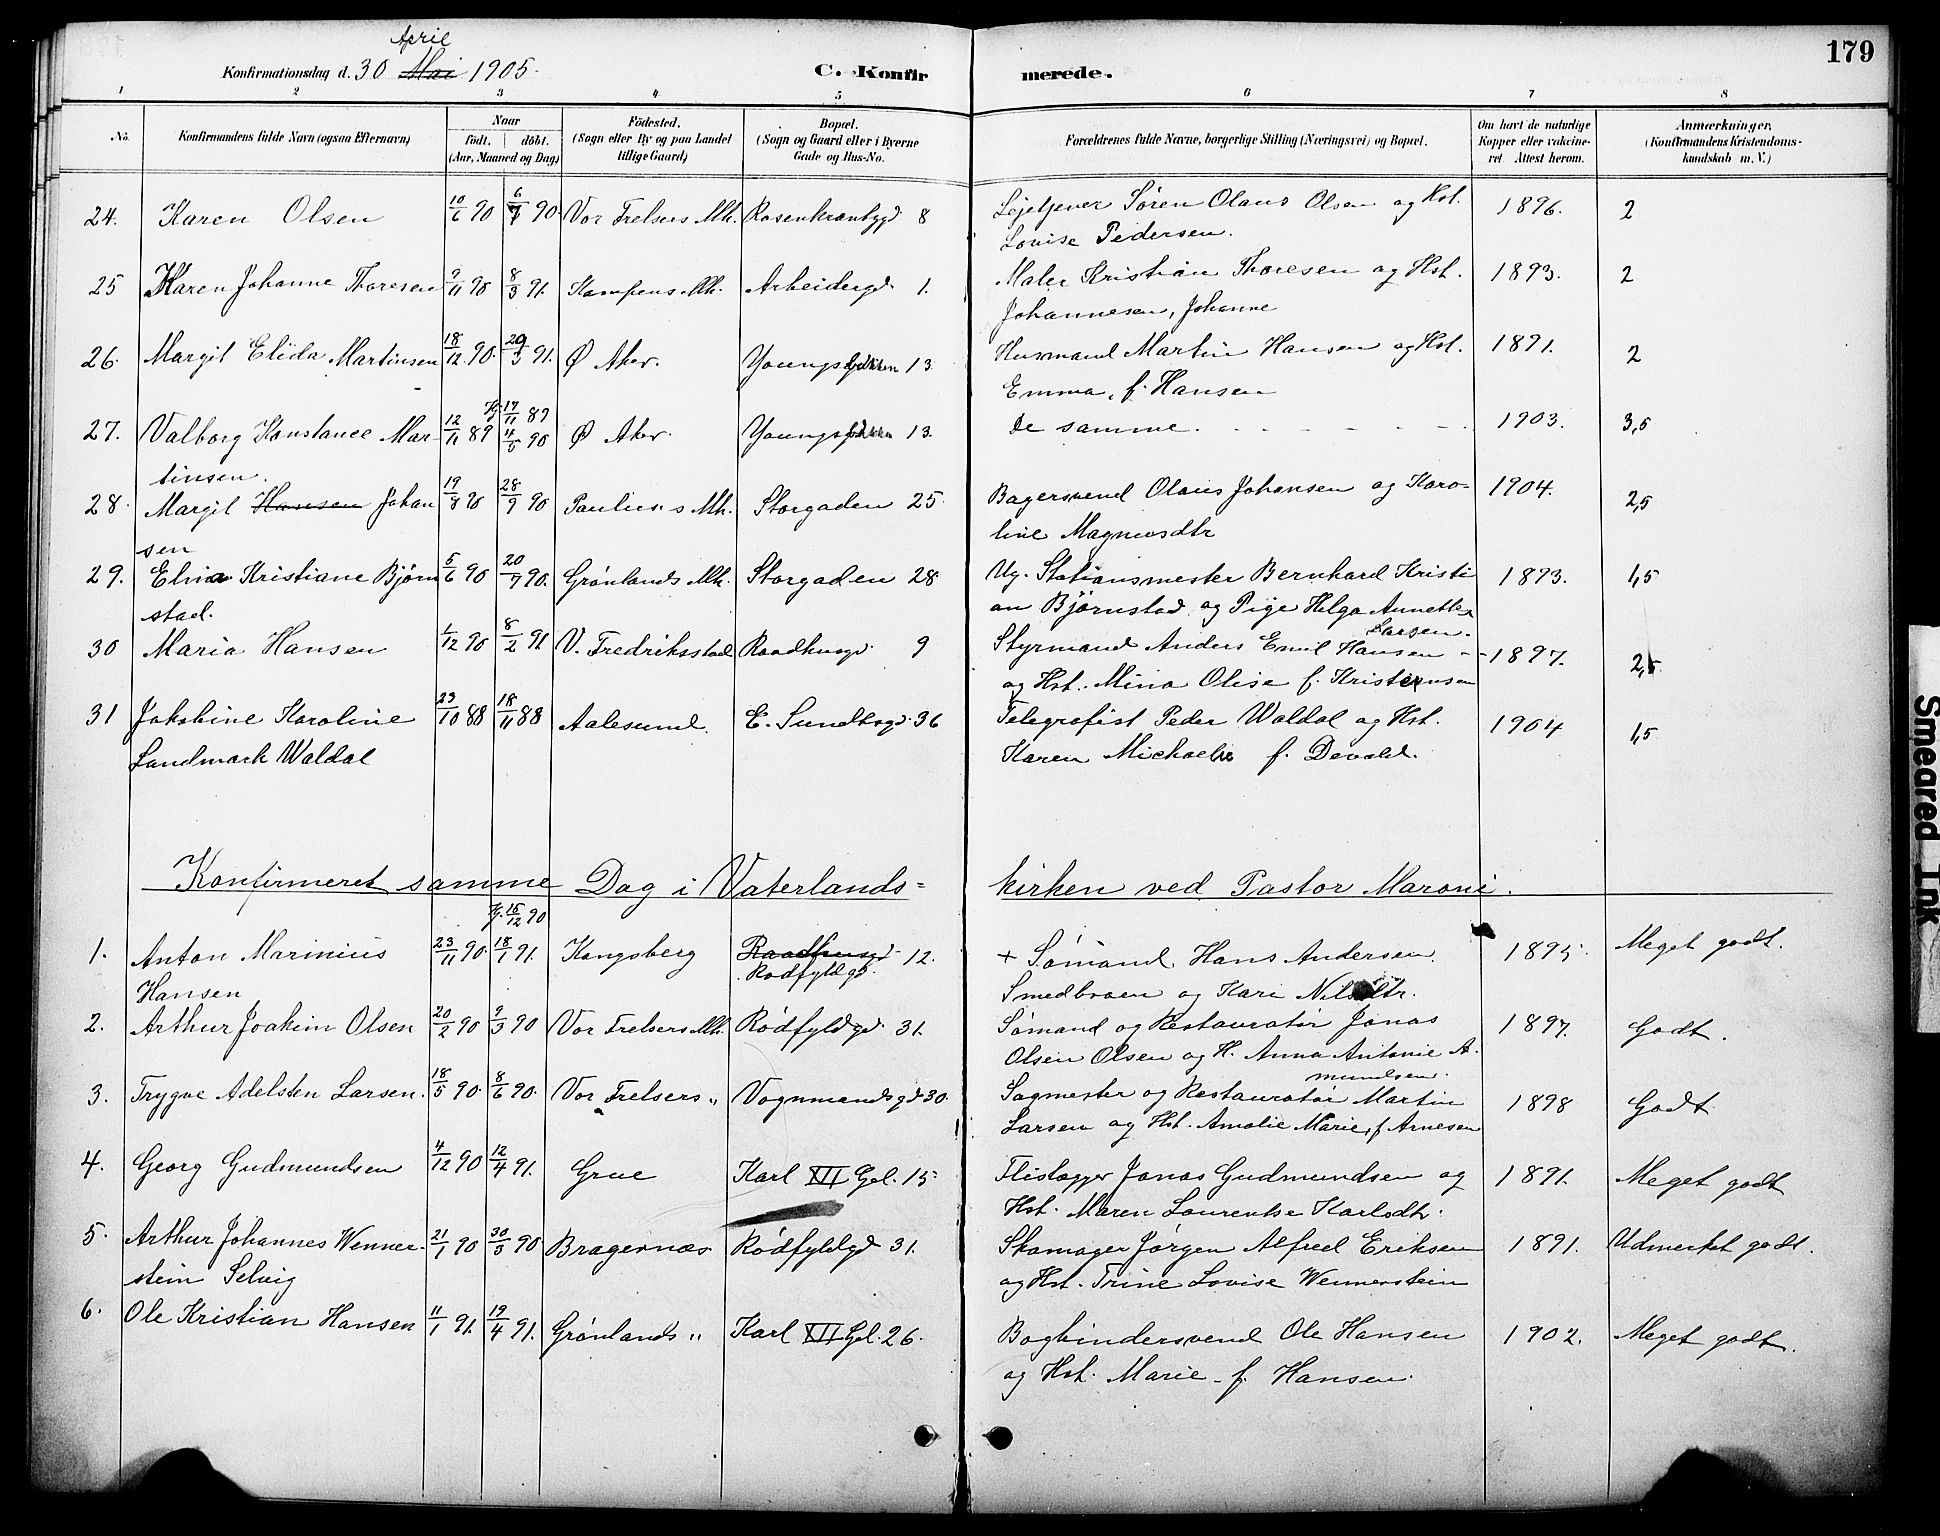 179
April
Konfirmationsdag d. 30 Mai 1905.
C. Konfirmerede.
1 2 3 4 5 6 7 8
No. Konfirmandens fulde Navn (ogsaa Efternavn) Naar født. døbt. (Aar, Maaned og Dag) Fødested. (Sogn eller By og paa Landet tillige Gaard) Bopæl. (Sogn og Gaard eller i Byerne Gade og Hus-No. Forældrenes fulde Navne, borgerlige Stilling (Næringsvei) og Bopæl. Om havt de naturlige Kopper eller vakcineret. Attest herom. Anmærkninger. (Konfirmandens Kristendomskundskab m. V.)
24. Karen Olsen 10/6 90 6/7 90. Vor Frelsers Mh. Rosenkrantzgd 8 Lejetjener Søren Olaus Olsen og Hst. 1896. 2
Lovise Pedersen.
25 Karen Johanne Thoresen 9/11 90 8/3 91. Kampens Mh. Arbeidergd. 1. Maler Kristian Thoresen og Hst. 1893. 2
Johannesen, Johanne
26. Margit Elida Martinsen 18/12 90. 29/3 91. Ø Aker. Youngs 13. Husmand Martin Hansen og Hst. 1891. 2
Emma, f. Hansen
Hj. 17/11 89
27. Valborg Konstance Mar- 12/11 89 4/5 90 Ø Aker. Youngs 13. De samme. 1903. 3,5
tinsen.
28. Margit Hansen Johan 19/8 90 28/9 90 Paulus's Mh. Storgaden 25. Bagersvend Olaus Johansen og Karo- 1904. 2,5
sen line Magnusdtr
29. Elna Kristiane Bjørn 5/6 90 20/7 90. Grønlands Mh. Storgaden 28. Ug. Stationsmester Bernhard Kristi 1893. 1,5
stad. an Bjørnstad og Pige Helga Annette
Larsen.
30 Maria Hansen 1/12 90 8/2 91 V. Fredriksstad Raadhusgd. 9 Styrmand Anders Emil Hansen -- 1897. 2,5
og Hst. Mina Olise f. Kristiansen
31 Jakobine Karoline 23/10 88 18/11 88 Aalesund. E. Sundtsgd. 36 Telegrafist Peder Waldal og Hst. 1904 1,5
Landmark Waldal Karen f. Devold.
Konfirmeret samme Dag i Vaterlands= kirken ved Pastor Maroni.
Hj. 15/12 90
1. Anton Marinius 23/11 90. 18/1 91. Kongsberg Raadhusgd. 12. + Sømand Hans Andersen. 1895. Meget godt.
Hansen Rødfyldgd. Smedbroen og Kari Nilsdtr.
2. Arthur Joakim Olsen 20/2 90 9/3 90 Vor Frelsers Mh. Rødfyldgd. 31. Sømand og Restauratør Jonas 1897. Godt.
Olsen Olsen og H. Anna Antonie A.
mundsen.
3. Trygve Adelsten Larsen. 18/5 90. 8/6 90. Vor Frelsers " Vognmandsgd 30. Sagmester og Restauratør Martin 1898 Godt
Larsen og Hst. Amalie Marie, f Arnesen
4. Georg Gudmundsen 4/12 90 12/4 91. Grue Karl XII Gd. 15. Flislægger Jonas Gudmundsen og 1891. Meget godt
Hst. Maren Laurentse Karlsdtr.
5. Arthur Johannes Wenner- 21/1 90 30/3 90 Bragernæs Rødfyldgd 31. Skomager Jørgen Alfred Eriksen 1891. Udmerket godt.
stein Selvig og Hst. Trine Lovise Wennerstein
6. Ole Kristian Hansen 11/1 91. 19/4 91. Grønlands " Karl XII Gd. 26. Bogbindersvend Ole Hansen 1902. Meget godt.
og Hst. Marie f. Hansen.
Smeared Ink